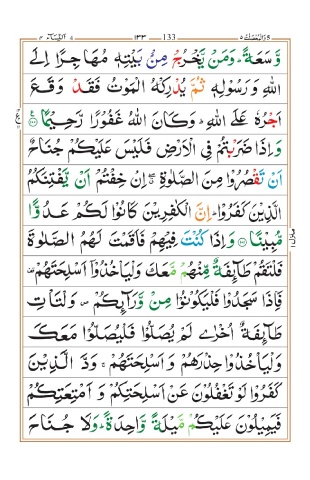 النسآء ٤ ١٣٣ 133 والمحصنت ٥
وَّسَعَةً ؕ وَمَنْ يَّخْرُجْ مِنْۢ بَيْتِهٖ مُهَاجِرًا اِلَى
اللّٰهِ وَرَسُوْلِهٖ ثُمَّ يُدْرِكْهُ الْمَوْتُ فَقَدْ وَقَعَ
اَجْرُهٗ عَلَى اللّٰهِ ؕ وَكَانَ اللّٰهُ غَفُوْرًا رَّحِيْمًا
وَاِذَا ضَرَبْتُمْ فِى الْاَرْضِ فَلَيْسَ عَلَيْكُمْ جُنَاحٌ
اَنْ تَقْصُرُوْا مِنَ الصَّلٰوةِ ۖ اِنْ خِفْتُمْ اَنْ يَّفْتِنَكُمُ
الَّذِيْنَ كَفَرُوْا ؕ اِنَّ الْكٰفِرِيْنَ كَانُوْا لَكُمْ عَدُوًّا
مُّبِيْنًا وَاِذَا كُنْتَ فِيْهِمْ فَاَقَمْتَ لَهُمُ الصَّلٰوةَ
فَلْتَقُمْ طَآئِفَةٌ مِّنْهُمْ مَّعَكَ وَلْيَاْخُذُوْۤا اَسْلِحَتَهُمْ
فَاِذَا سَجَدُوْا فَلْيَكُوْنُوْا مِنْ وَّرَآئِكُمْ ۪ وَلْتَاْتِ
طَآئِفَةٌ اُخْرٰى لَمْ يُصَلُّوْا فَلْيُصَلُّوْا مَعَكَ
وَلْيَاْخُذُوْا حِذْرَهُمْ وَاَسْلِحَتَهُمْ ۚ وَدَّ الَّذِيْنَ
كَفَرُوْا لَوْ تَغْفُلُوْنَ عَنْ اَسْلِحَتِكُمْ وَاَمْتِعَتِكُمْ
فَيَمِيْلُوْنَ عَلَيْكُمْ مَّيْلَةً وَّاحِدَةً ؕ وَلَا جُنَاحَ